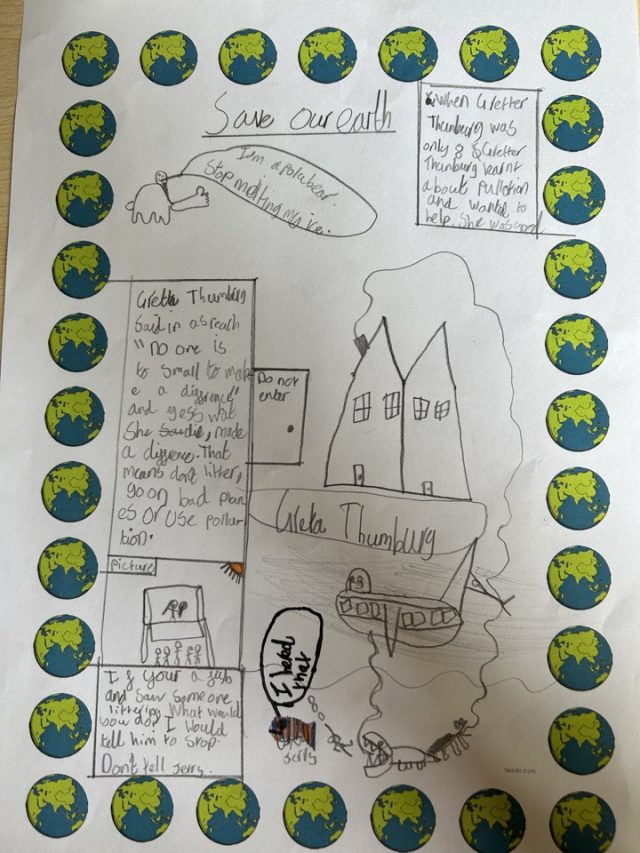 Save our earth
I'm a polabear.
Stop melting my ice.
When Gretter
Thunburg was
only 8 Gretter
Thunburg learnt
about Pullotion
and wanted to
help. She was good
Greta Thumburg
Said in a sreach
"no one is
to small to mak
e a diffrence"
and gess wat
She made
a dyffrence. That
means don't litter,
go on bad plan
es or use pollu
tion.
Do not
enter
Greta Thumburg
picture
If your a fish
and saw someone
littering What would
you do? I would
tell him to stop.
Don't tell Jerry.
I heard
that
Jerry
twinkl.com